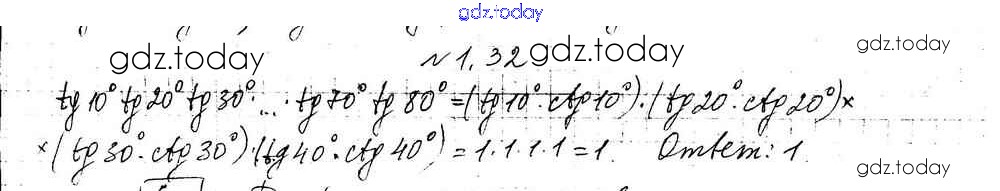 gdz.today
№ 1.32 gdz.today
gdz.today
gdz.today
tg10° tg20° tg30° · ... · tg70° tg80° = (tg10° · ctg10°) · (tg20° · ctg20°) ×
× (tg30° · ctg30°) · (tg40° · ctg40°) = 1·1·1·1 = 1. Ответ: 1.
gdz.today